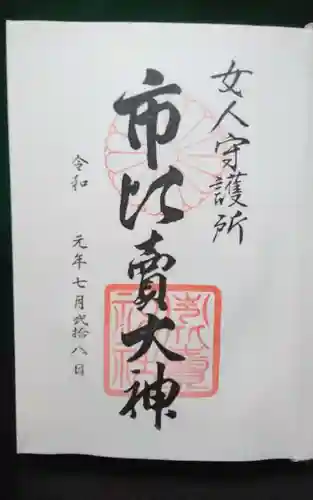 女人守護所
市比賣大神
令和 元年七月弐拾八日